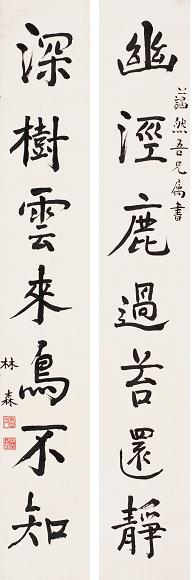 幽渓鹿過苔還靜
藹然吾兄屬書
深樹雲來鳥不知
林森